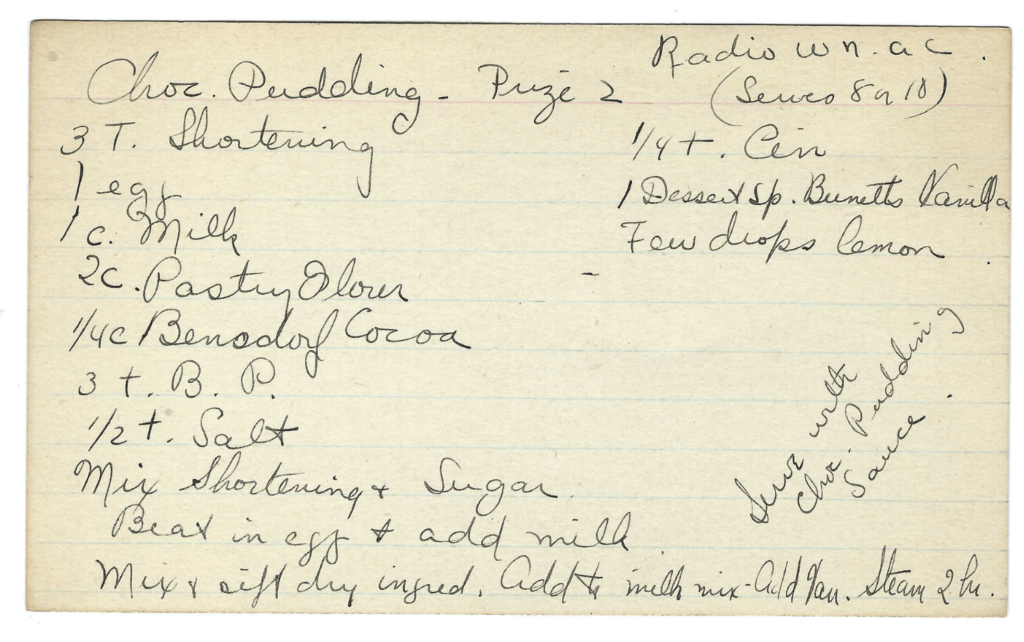 Radio W n. a c.
Choc. Pudding - Prize 2
(Serves 8 or 10)
3 T. Shortening
1 egg
1 c. Milk
2c. Pastry Flour
1/4c Bensdorf Cocoa
3 t. B. P.
1/2 t. Salt
1/4 t. Cin
1 Dessert Sp. Burnetts Vanilla
Few drops lemon.
Mix Shortening & Sugar.
Beat in egg & add milk
Mix & sift dry ingred. Add to milk mix - Add Van. Steam 2 hr.
Serve with
Choc. Pudding
Sauce.